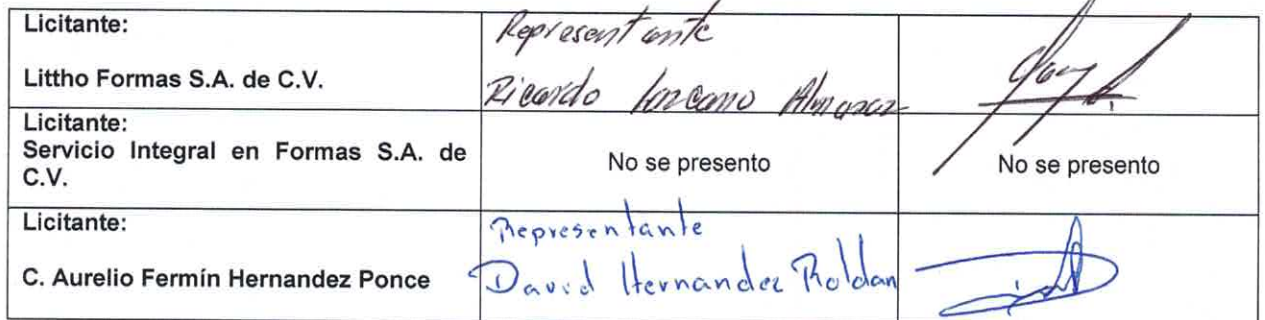 Licitante:
Littho Formas S.A. de C.V.
Representante
Ricardo Lozcano Almazar
Licitante:
Servicio Integral en Formas S.A. de
C.V.
No se presento
No se presento
Licitante:
C. Aurelio Fermín Hernandez Ponce
Representante
David Hernandez Roldan